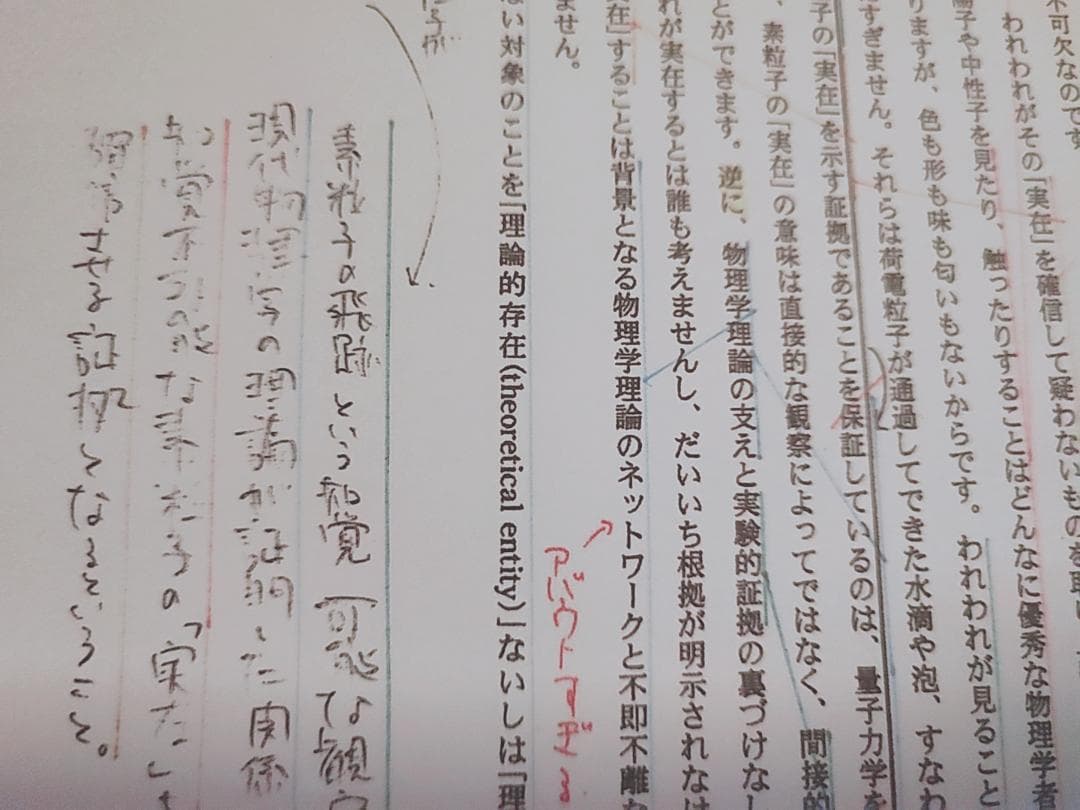 不可欠なのです
われわれがその「実在」を確信して疑わないものを
陽子や中性子を見たり、触ったりすることはどんなに優秀な物理学者
りますが、色も形も味も匂いもないからです。われわれが見ること
すぎません。それらは荷電粒子が通過してできた水滴や泡、すなわ
子の「実在」を示す証拠であることを保証しているのは、量子力学を
、素粒子の「実在」の意味は直接的な観察によってではなく、間接的
とができます。逆に、物理学理論の支えと実験的証拠の裏づけなし
れが実在するとは誰も考えませんし、だいいち根拠が明示されなけ
実在」することは背景となる物理学理論のネットワークと不即不離な
ません。
アバウトすぎる
ない対象のことを「理論的存在(theoretical entity)」ないしは「理
素粒子の飛跡という知覚可能な観察
現代物理学の理論が証明した関係
知覚不可能な素粒子の「実在」を
確信させる証拠となるということ。